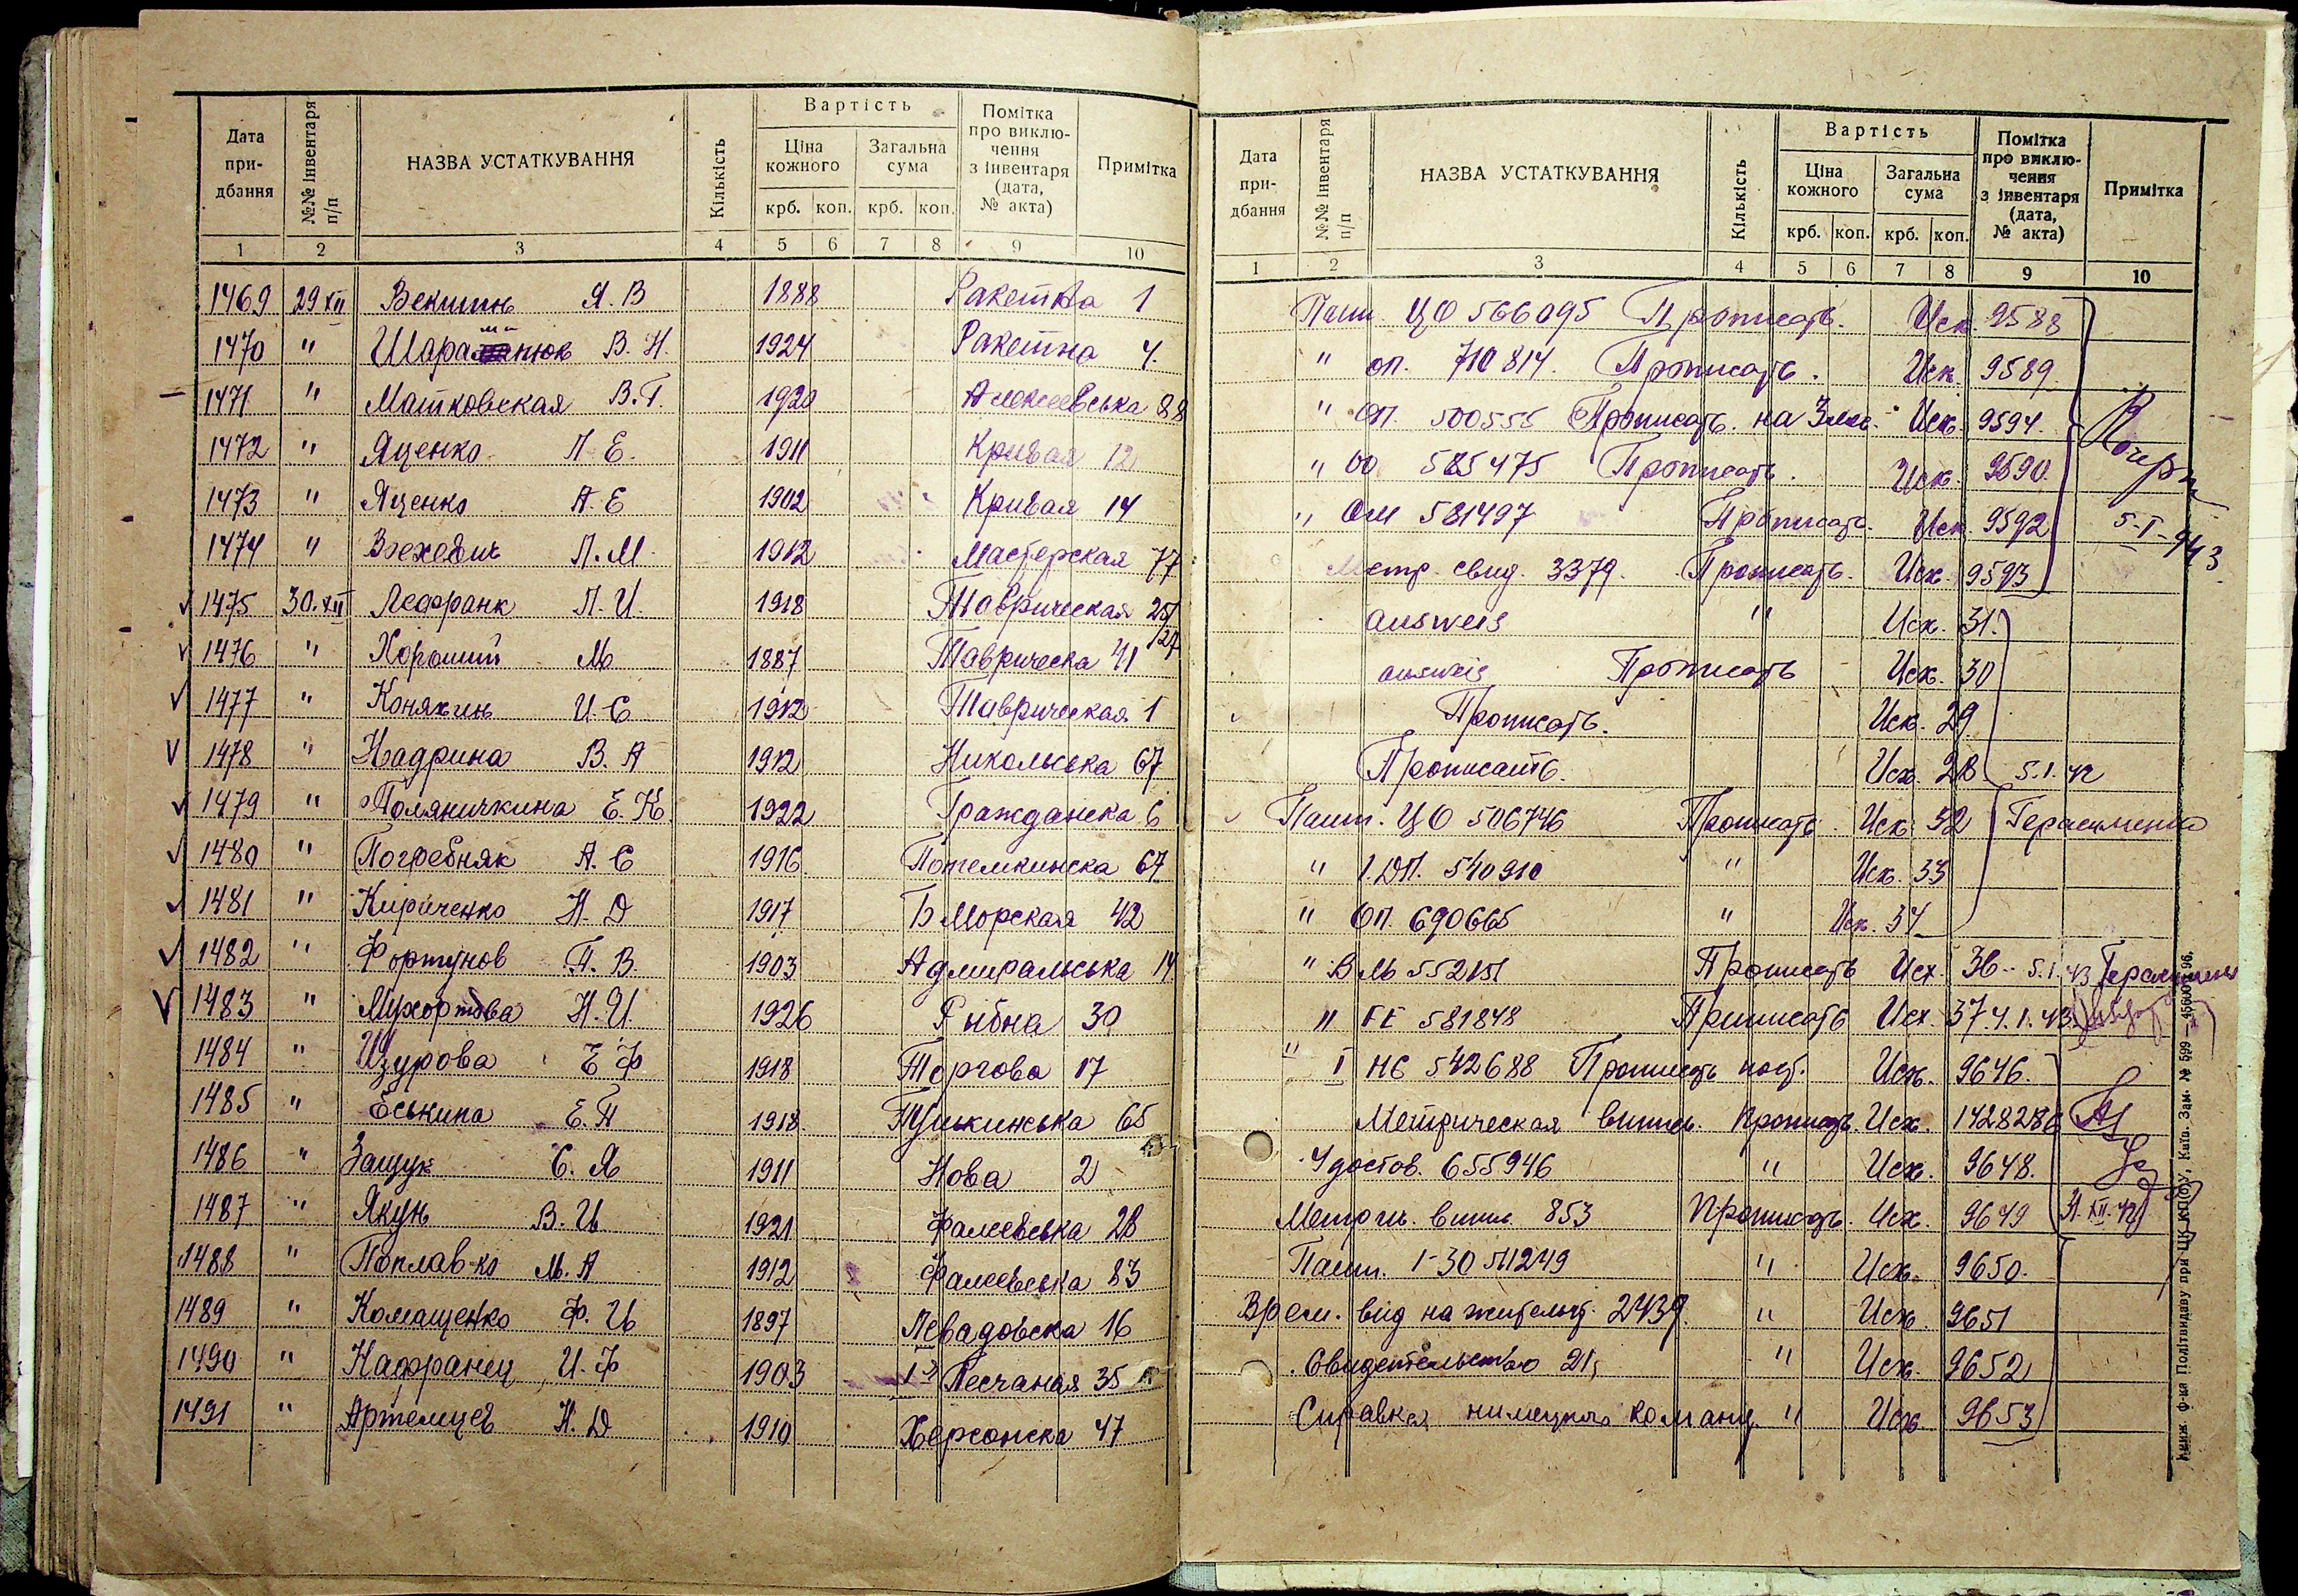 Дата придбання №№ інвентаря п/п НАЗВА УСТАТКУВАННЯ Кількість Вартість Ціна кожного крб. коп. Загальна сума крб. коп. Помітка про виключення з інвентаря (дата, № акта) Примітка
1 2 3 4 5 6 7 8 9 10
1469 29 XII Векшин Я. В 1888 Ракетна 1
1470 " В. Н. 1924 Ракетна 4
1471 " Матковская В. Г. 1920 Алексеевська 88
1472 " Яценко П. Е. 1911 Кривая 12
1473 " Яценко А. Е 1902 Кривая 14
1474 " П. М. 1912 Мастерская 77
1475 30. XII Лефранк П. И. 1918 Таврическая 25/27
1476 " Хороший М 1887 Таврическа 41
1477 " Конякин И. С 1912 Таврическая 1
1478 " Надрина В. А 1912 Никольська 67
1479 " Поляничкина Е. К 1922 Гражданска 6
1480 " Погребняк А. С 1916 Потемкинска 67
1481 " Кириченко Н. D 1917 Б Морская 42
1482 " Фортунов П. В. 1903 Адмиральська 14
1483 " Мухортова Н. И. 1926 Рибна 30
1484 " Изурова Е Ф 1918 Торгова 17
1485 " Еськина Е. П 1918 Пушкинська 65
1486 " Защук С. Я 1911 Нова 2
1487 " Якун В. И 1921 Фалеевська 28
1488 " Поплавко М. А 1912 Фалеевська 83
1489 " Комащенко Ф. И 1897 Левадовска 16
1490 " Кафранец И. Ф 1903 Песчаная 35
1491 " Артемцев Н. D 1910 Херсонска 47
Дата придбання №№ інвентаря п/п НАЗВА УСТАТКУВАННЯ Кількість Вартість Ціна кожного крб. коп. Загальна сума крб. коп. Помітка про виключення з інвентаря (дата, № акта) Примітка
1 2 3 4 5 6 7 8 9 10
Пашп ЦО 566095 Прописать. Исх. 9588
" оп. 710814. Прописать. Исх. 9589
" оп. 500555 Прописать на Исх. 9594
" оо 585475 Прописать. Исх. 9590
" ОМ 581497 Прописать. Исх. 9592 5-I-943
Метр. свид. 3379. Прописать. Исх. 9593
ausweis " Исх. 31.
ausweis Прописать Исх. 30
Прописать. Исх. 29
Прописать. Исх. 28 5. I. 42
Пашп. ЦО 506746 Прописать. Исх. 32 Герасименко
" 540910 " Исх. 33
" оп. 690665 " Исх. 34
" 552151 Прописать Исх. 36 5. I. 43
" 581848 Прописать Исх. 37. 4. I. 43.
" I НЄ 542688 Прописать Исх. 9646.
Метрическая выпись. Прописать. Исх. 1428286
Удостов. 655946 " Исх. 9648.
853 Прописать. Исх. 9649
Пашп. " Исх. 9650.
Врем. вид на жительст. 2439. " Исх. 9651
Свидетельство 21, " Исх. 9652
Справка команд " Исх 9653